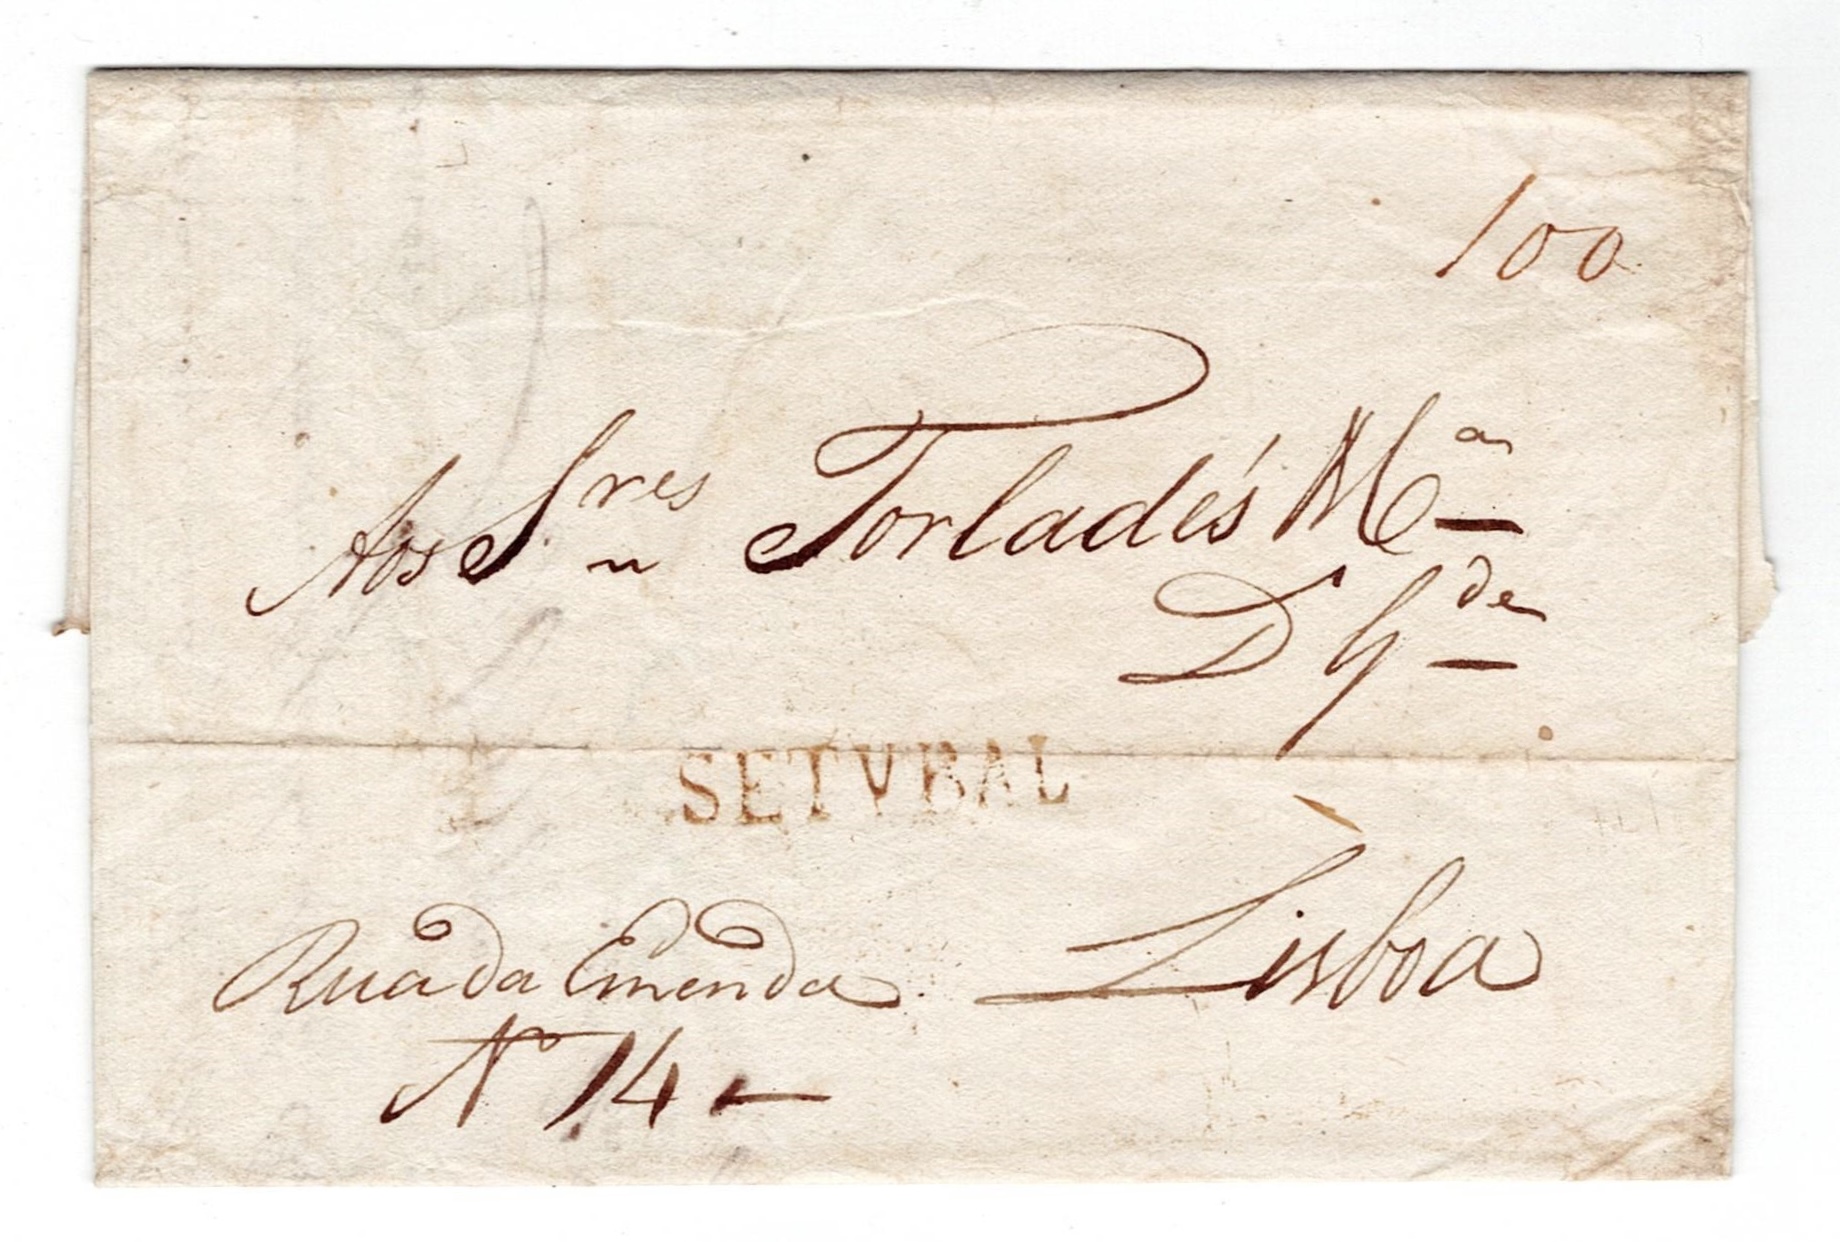 100
Aos Sres Torlades Ma
D Gde
SETVBAL
Rua da Emenda Lisboa
No 14